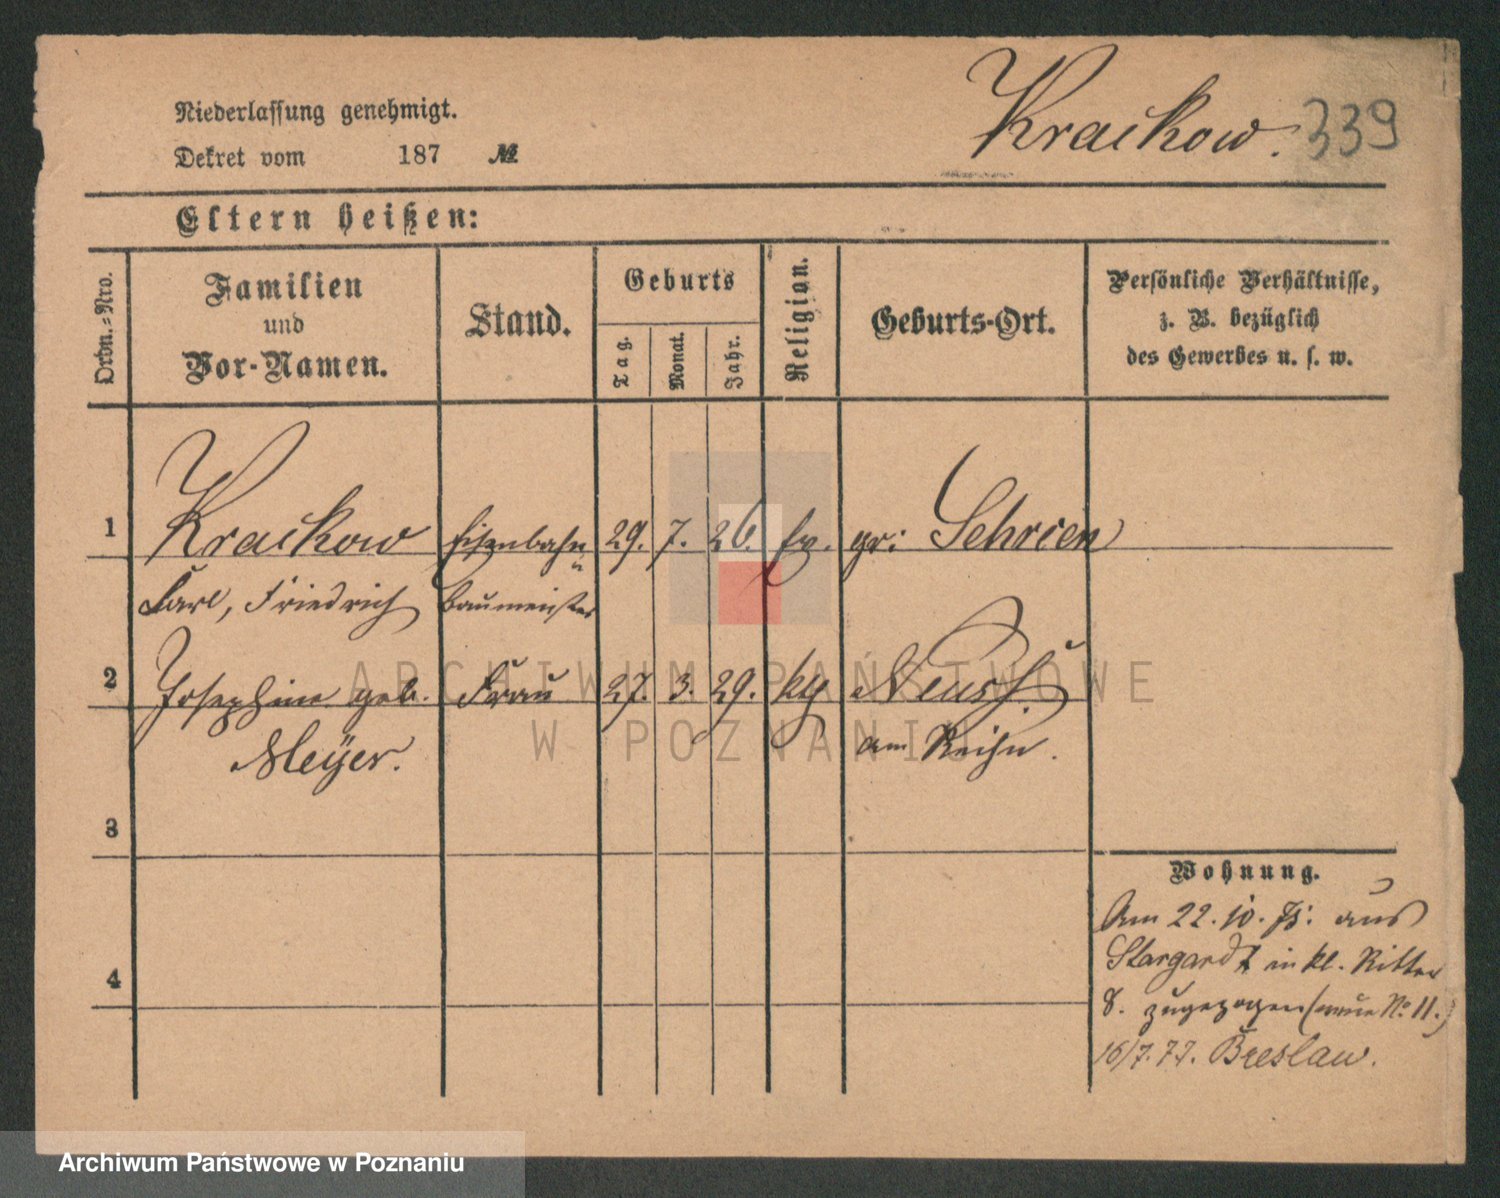 Niederlassung genehmigt.
Dekret vom 187 №
Krackow. 339
Eltern heißen:
Ordn.-Nro.
Familien
und
Vor-Namen.
Stand.
Geburts
Tag.
Monat.
Jahr.
Religion.
Geburts-Ort.
Persönliche Verhältnisse,
z. B. bezüglich
des Gewerbes u. s. w.
1 Krackow Eisenbahn 29. 7. 26. ev. gr:
Carl, Friedrich baumeister
2 Josephine geb. Frau 27. 3. 29. kth Neuss
Meÿer. am Rhein.
3
4
Wohnung.
Am 22. 10. aus
Stargardt in kl. Ritter
8. zugezogen (neue No 11.)
16/7. 77. Breslau.
ARCHIWUM PAŃSTWOWE
W POZNANIU
Archiwum Państwowe w Poznaniu